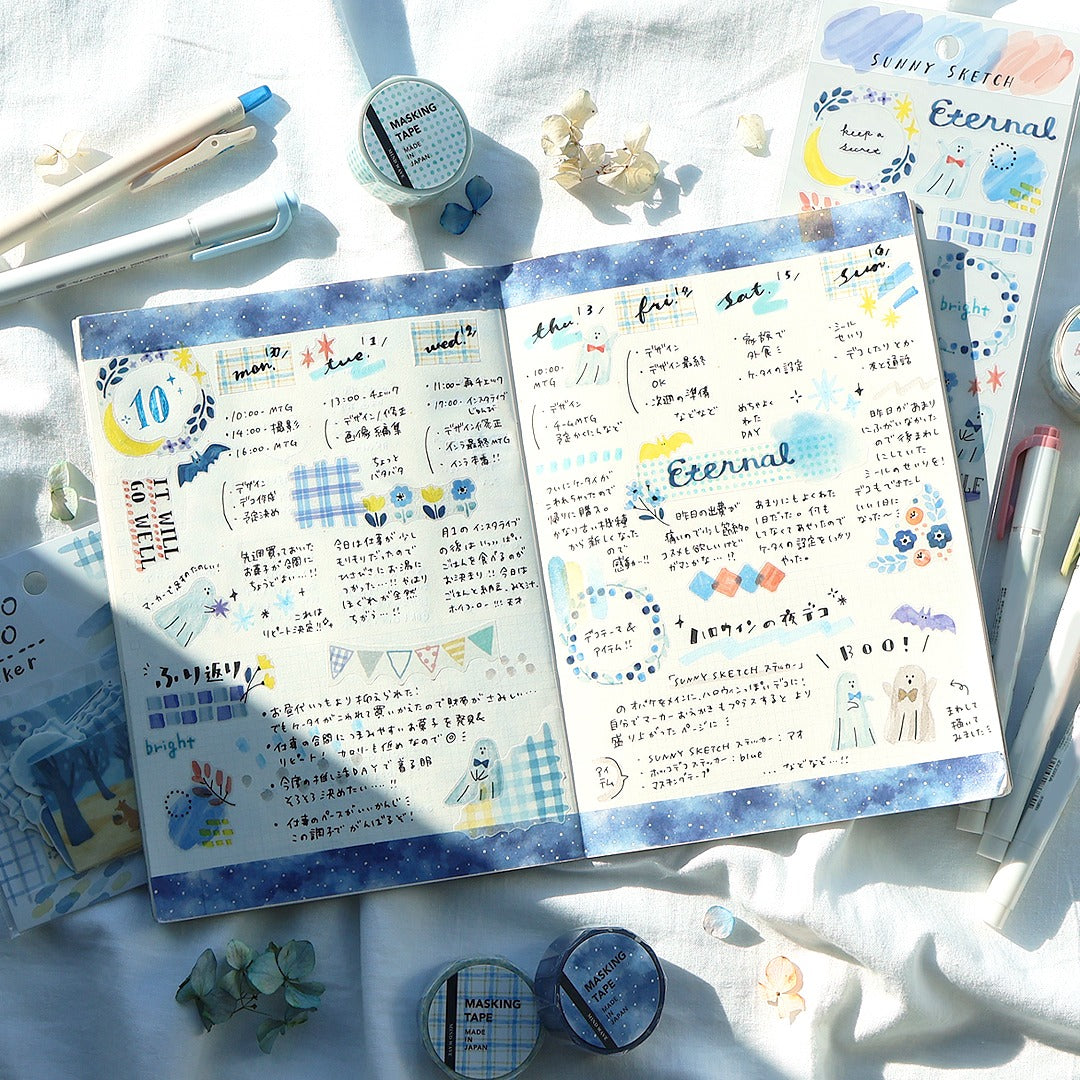 SUNNY SKETCH
keep a
secret
Eternal
bright
MASKING
TAPE
MADE
IN
JAPAN
MIND WAVE
10
IT WILL
GO WELL
mon.
・10:00- MTG
・14:00- 撮影
・16:00- MTG
・デザイン
・デコ作成
・予定決め
先週買っておいた
お菓子が合間に
ちょうどよい…!!
これは
リピート決定!!
マーカーで足すのたのしい!
tue.
・13:00-チェック
・デザイン修正
・画像編集
ちょっと
バタバタ
今日は仕事が少し
ひさびさにお湯に
つかった…!! やはり
ほぐれが全然
ちがう…!!
wed.
・11:00-再チェック
・19:00-インスタライブ
じゅんび
・デザイン修正
・インラ最終MTG
・インラ本番!!
月1のインスタライブ
の後はいっぱい
ごはんを食べるのが
お決まり!! 今日は
ごはんと納豆、みそ汁、
ホイコーロー!!!
ふり返り
bright
・お昼代いつもより抑えられた!
でもケータイがこわれて買いかえたので財布がさみしい…
・仕事の合間につまみやすいお菓子を発見&
リピート! カロリーも低めなので◎
・今度の推し活DAYで着る服
そろそろ決めたい…!!
・仕事のペースがいいかんじ
この調子でがんばるぞ!
thu.
・10:00-
MTG
・デザイン
・チームMTG
ついにケータイが
こわれちゃったので
帰りに購入。
かなり古い機種
から新しくなった
ので
感動…!!
fri.
・デザイン
・デザイン最終
OK
・次週の準備
などなど
昨日の出費が
痛いので少し節約。
コスメも欲しいけど
ガマンかな…!?
sat.
・家族で
外食
・ケータイの設定
めちゃよく
ねた
DAY
Eternal
あまりにもよくねた
1日だった。何も
してなくてあせったので
ケータイの設定をしっかり
やった。
sun.
・シール
せいり
・デコしたりとか
友と通話
昨日があまり
にふがいなかった
ので後まわし
にしていた
シールのせいりを!
デコもできたし
いい1日に
なった〜
デコテーマ&
アイテム!!
ハロウィンの夜デコ
「SUNNY SKETCH ステッカー」
のオバケをメインに、ハロウィンっぽいデコに!
自分でマーカーおえかきもプラスすると より
盛り上がったページに
アイ
テム
・SUNNY SKETCH ステッカー:アオ
・ホッコデコステッカー:blue
・マスキングテープ
…などなど…!!
BOO!
まねして
描いて
みました
ker
MASKING
TAPE
MADE
IN
JAPAN
MIND WAVE
MASKING
TAPE
MADE
IN
JAPAN
MIND WAVE